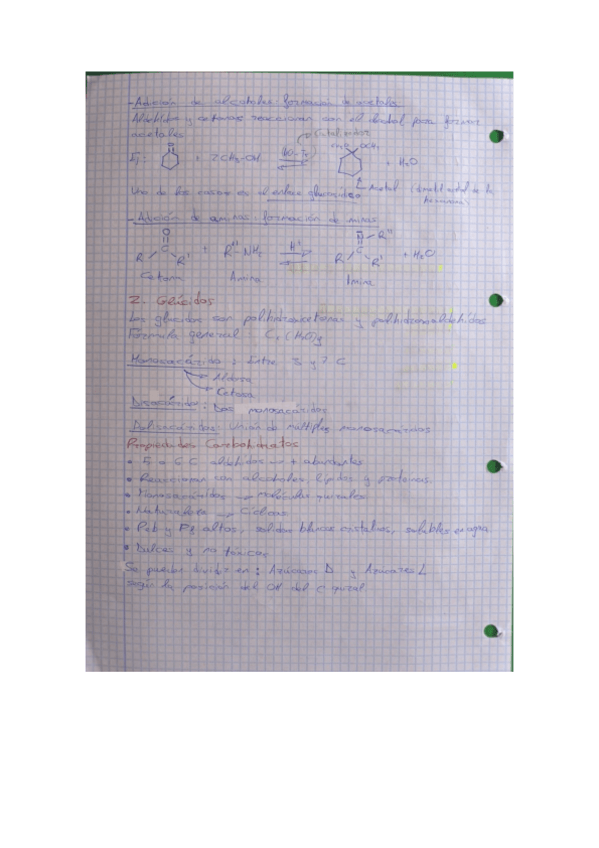 - Adición de alcoholes: formación de acetales
Aldehídos y cetonas reaccionan con el alcohol para formar
acetales
Catalizador
Ej: + 2 CH3-OH + H2O
OCH3
Acetal
Uno de los casos es el enlace glucosídico
- Adición de aminas: formación de iminas
O
R R' + R'' NH2 H+ N R'' R R' + H2O
Cetona Amina Imina
2. Glúcidos
Los glúcidos son polihidroxicetonas y polihidroxialdehídos
Fórmula general: Cx (H2O)y
Monosacárido: Entre 3 y 7 C
Aldosa
Cetosa
Disacáridos: Dos monosacáridos
Polisacáridos: Unión de múltiples monosacáridos
Propiedades Carbohidratos
• 5 o 6 C aldehídos → + abundantes
• Reaccionan con alcoholes, lípidos y proteínas
• Monosacáridos → moléculas quirales
• Naturaleza → Cíclicas
• Peb y Pf altos, solidos blancos cristalinos, solubles en agua
• Dulces y no tóxicos
Se pueden dividir en: Azúcares D y Azúcares L
según la posición del OH del C quiral